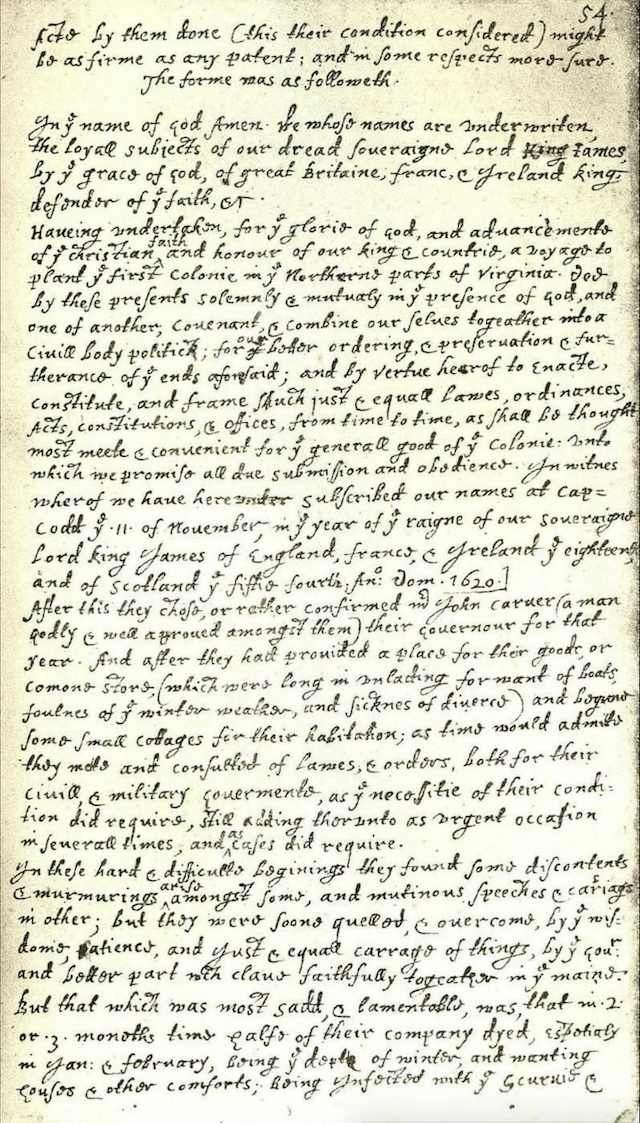 54.
Acte by them done (this their condition considered) might
be as firme as any patent; and in some respects more sure.
The forme was as followeth.
In yᵉ name of god Amen. We whose names are underwriten,
the loyall subjects of our dread soveraigne Lord King James,
by yᵉ grace of god, of great Britaine, franc, & Ireland king,
defender of yᵉ faith, &c.
Haveing undertaken, for yᵉ glorie of god, and advancemente
of yᵉ christian faith and honour of our king & countrie, a voyage to
plant yᵉ first colonie in yᵉ Northerne parts of Virginia. Doe
by these presents solemnly & mutualy in yᵉ presence of god, and
one of another; covenant, & combine our selves togeather into a
Civill body politick; for our better ordering, & preservation & fur=
therance of yᵉ ends aforesaid; and by vertue hearof to Enacte,
constitute, and frame shuch just & equall Lawes, ordinances,
Acts, constitutions, & offices, from time to time, as shall be thought
most meete & convenient for yᵉ generall good of yᵉ colonie: unto
which we promise all due submission and obedience. In witnes
wherof we have hereunder subscribed our names at Cap=
Codd yᵉ .11. of November, in yᵉ year of yᵉ raigne of our soveraigne
Lord king James of England, france, & Ireland yᵉ eighteenth,
and of Scotland yᵉ fiftie fourth. Anº: Dom. 1620.]
After this they chose, or rather confirmed mʳ John carver (a man
godly & well approved amongst them) their governour for that
year. And after they had provided a place for their goods, or
comone store, (which were long in unlading for want of boats,
foulnes of yᵉ winter weather, and sicknes of diverce) and begune
some small cottages for their habitation; as time would admitte
they mette and consulted of Lawes, & orders, both for their
civill, & military govermente, as yᵉ necessitie of their condi=
tion did require, still adding therunto as urgent occasion
in severall times, and as cases did require.
In these hard & difficulte beginings they found some discontents
& murmurings arise amongst some, and mutinous speeches & cariags
in other; but they were soone quelled, & overcome, by yᵉ wis=
dome, patience, and just & equall carrage of things, by yᵉ govʳ.
and better part wᶜʰ clave faithfully togeather in yᵉ maine.
But that which was most sadd, & lamentable, was, that in .2.
or .3. moneths time halfe of their company dyed, espetialy
in Jan: & february, being yᵉ depth of winter, and wanting
houses & other comforts; being Infected with yᵉ Scurvie &